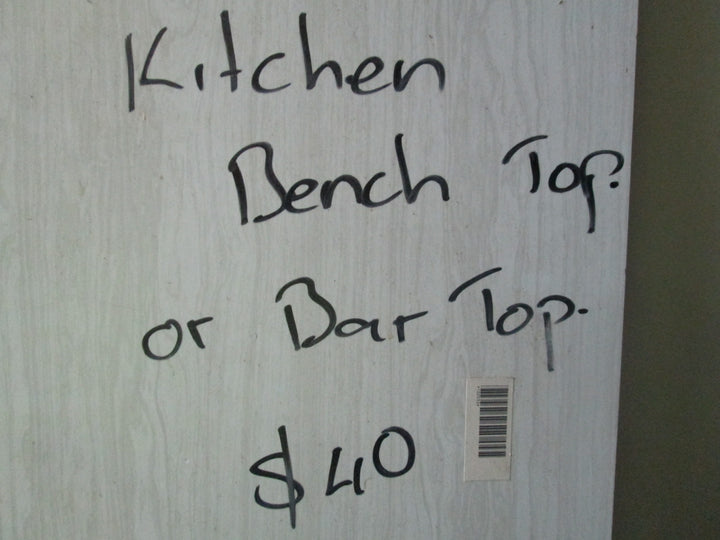 Kitchen
Bench Top.
or Bar Top.
$40